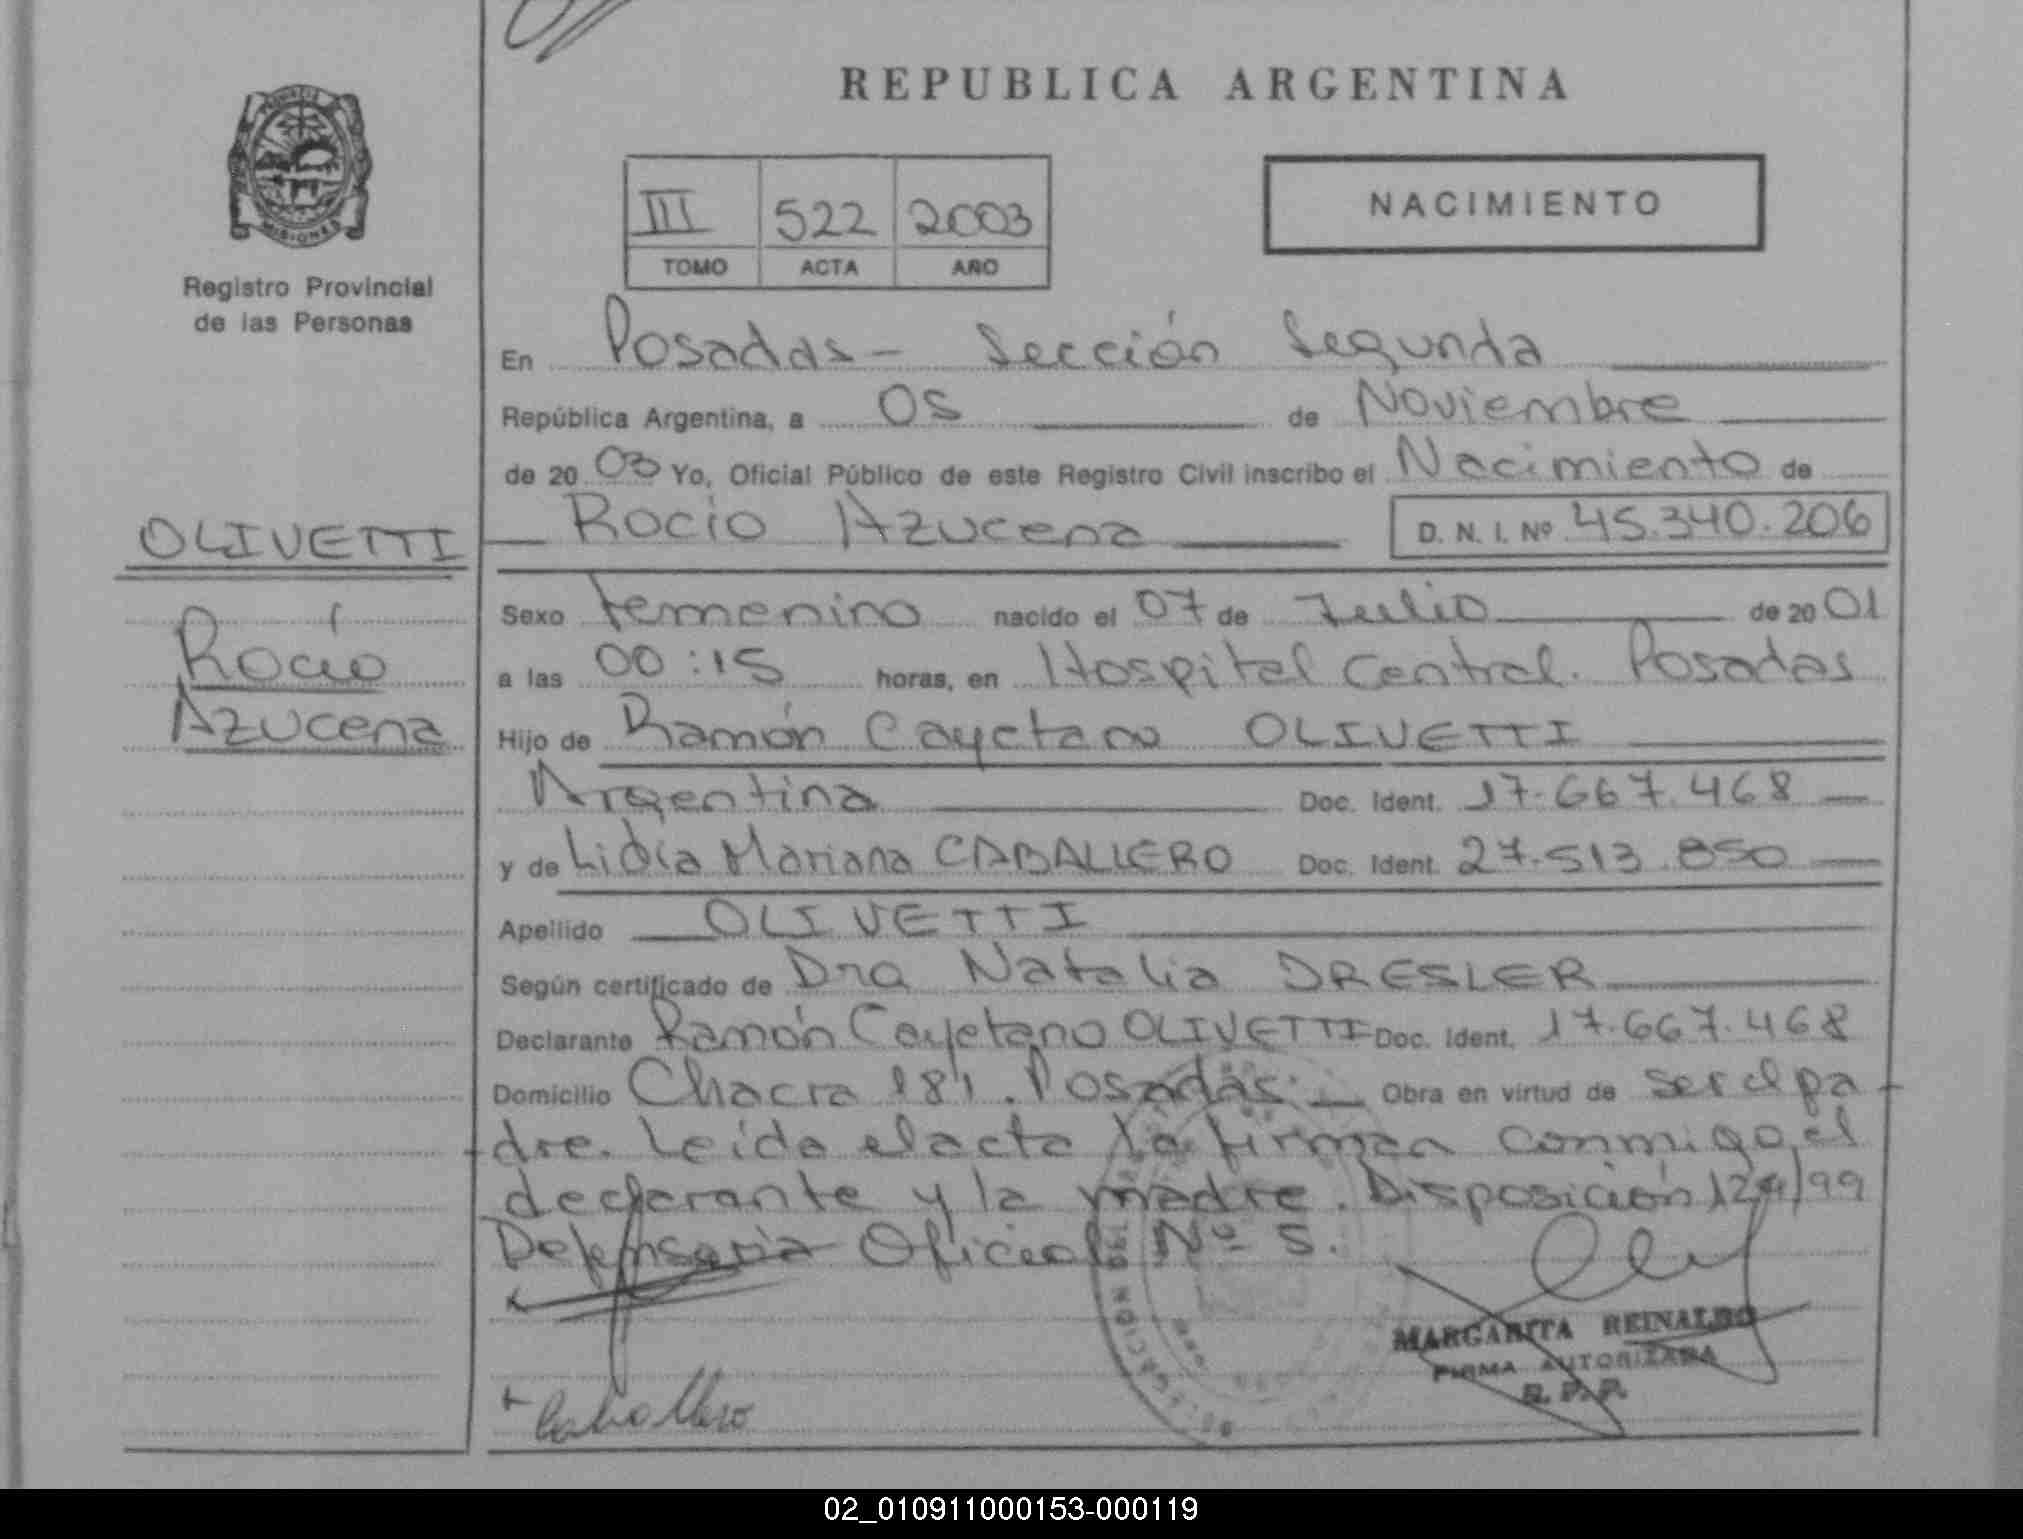 REPUBLICA ARGENTINA
PROVINCIA
MISIONES
Registro Provincial
de las Personas
III 522 2003
TOMO ACTA AÑO
NACIMIENTO
En Posadas - Sección Segunda
República Argentina, a 05 de Noviembre
de 20 03 Yo, Oficial Público de este Registro Civil inscribo el Nacimiento de
OLIVETTI
Rocío Azucena
Rocio Azucena D. N. I. Nº 45.340.206
Sexo femenino nacido el 07 de Julio de 20 01
a las 00:15 horas, en Hospital Central. Posadas
Hijo de Ramón Cayetano OLIVETTI
Argentina Doc. Ident. 17.667.468
y de Lidia Mariana CABALLERO Doc. Ident. 27.513.850
Apellido OLIVETTI
Según certificado de Dra Natalia DRESLER
Declarante Ramón Cayetano OLIVETTI Doc. Ident. 17.667.468
Domicilio Chacra 181. Posadas. Obra en virtud de ser el pa-
dre. Leída el acta la firman conmigo, el
declarante y la madre. Disposición /99
Defensoría Oficial Nº 5.
DELEGACION
MARGARITA REINALDO
FIRMA AUTORIZADA
R. P. P.
Caballero
02_010911000153-000119